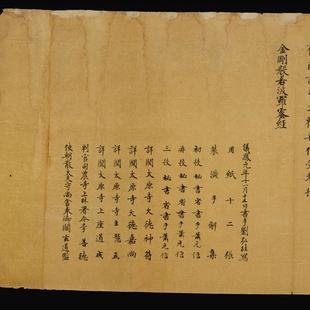 金剛般若波羅蜜經
儀鳳元年十一月十五日書手劉弘珪寫
用紙十二張
裝潢手解集
初校秘書省書手蕭元信
再校秘書省書手蕭元信
三校秘書省書手蕭元信
詳閱太原寺大德神符
詳閱太原寺大德嘉尚
詳閱太原寺寺主慧立
詳閱太原寺上座道成
判官司農寺上林署令李善德
使朝散大夫守尚舍奉御閻玄道監